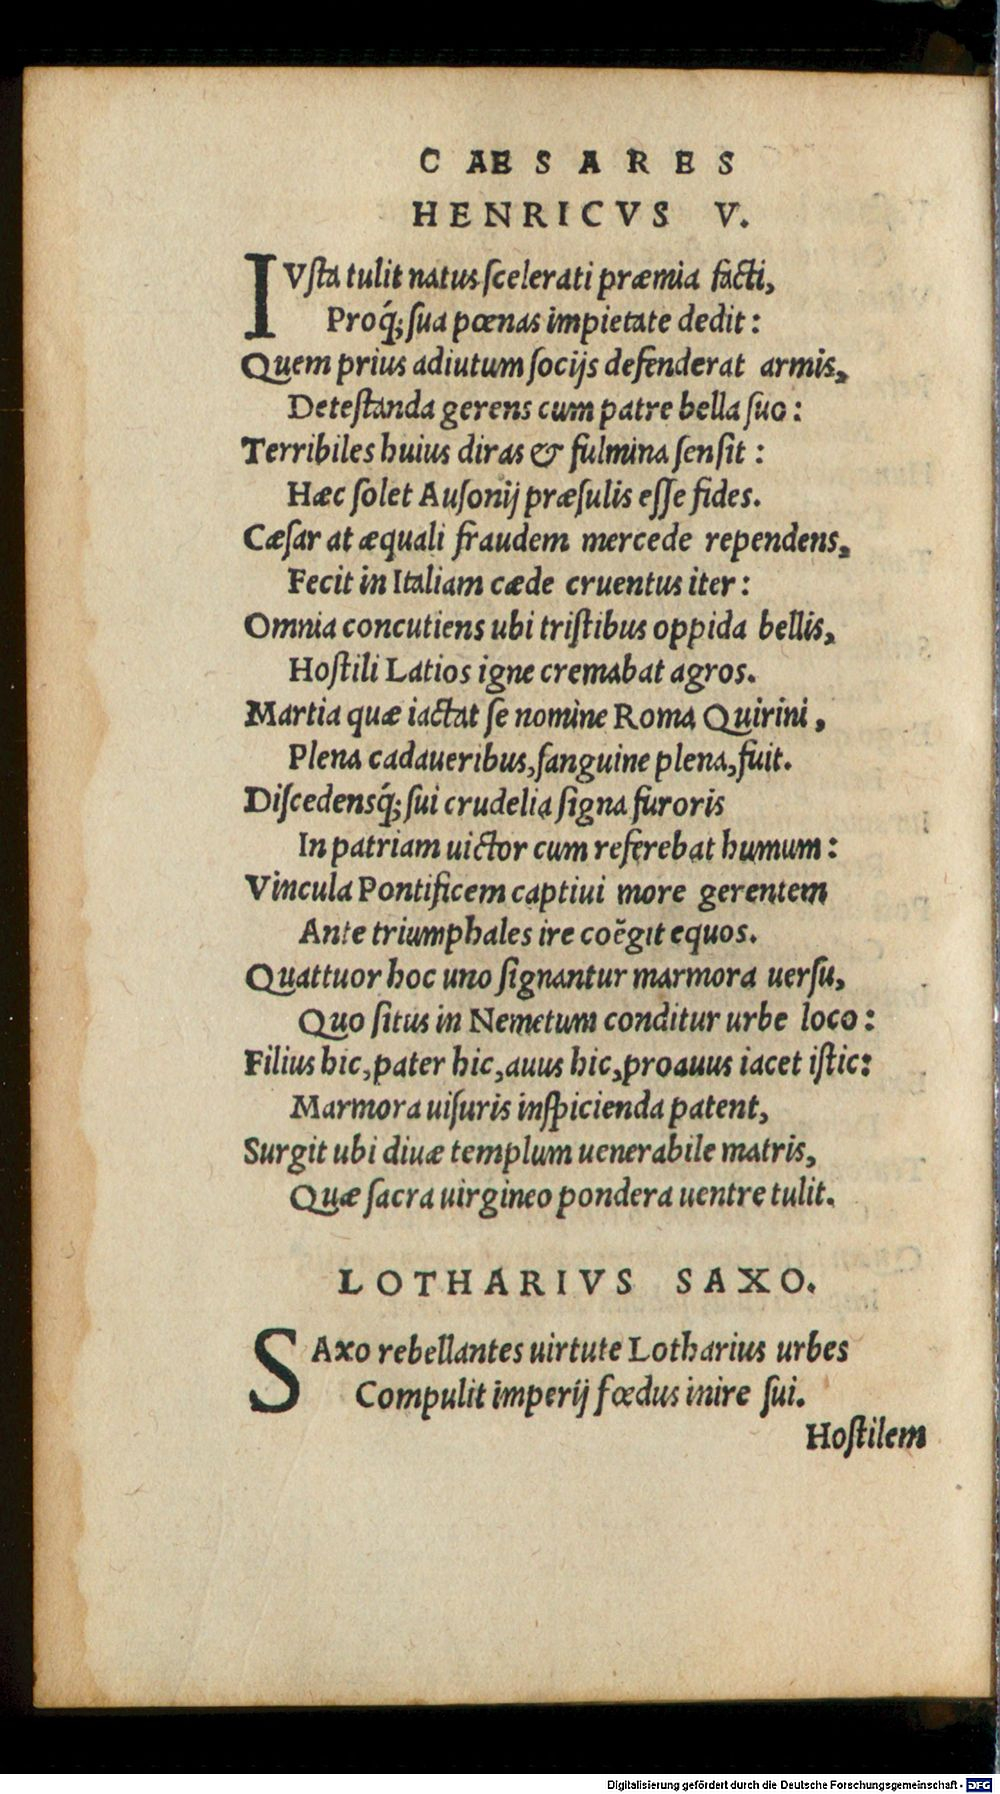 CAESARES
HENRICVS V.
IVſta tulit natus ſcelerati præmia facti,
Proq́; ſua pœnas impietate dedit:
Quem prius adiutum ſocijs defenderat armis,
Deteſtanda gerens cum patre bella ſuo:
Terribiles huius diras & fulmina ſenſit:
Hæc ſolet Auſonij præſulis eſſe fides.
Cæſar at æquali fraudem mercede rependens,
Fecit in Italiam cæde cruentus iter:
Omnia concutiens ubi triſtibus oppida bellis,
Hoſtili Latios igne cremabat agros.
Martia quæ iactat ſe nomine Roma Quirini,
Plena cadaueribus, ſanguine plena, fuit.
Diſcedensq́; ſui crudelia ſigna furoris
In patriam uictor cum referebat humum:
Vincula Pontificem captiui more gerentem
Ante triumphales ire coëgit equos.
Quattuor hoc uno ſignantur marmora uerſu,
Quo ſitus in Nemetum conditur urbe loco:
Filius hic, pater hic, auus hic, proauus iacet iſtic:
Marmora uiſuris inſpicienda patent,
Surgit ubi diuæ templum uenerabile matris,
Quæ ſacra uirgineo pondera uentre tulit.
LOTHARIVS SAXO.
SAxo rebellantes uirtute Lotharius urbes
Compulit imperij fœdus inire ſui.
Hoſtilem
Digitalisierung gefördert durch die Deutsche Forschungsgemeinschaft - DFG